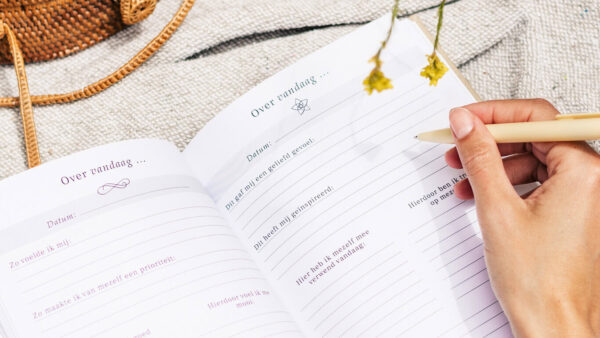 Over vandaag ...
Datum:
Zo voelde ik mij:
Zo maakte ik van mezelf een prioriteit:
Hierdoor voel ik me
Over vandaag ...
Datum:
Dit gaf mij een geliefd gevoel:
Dit heeft mij geïnspireerd:
Hier heb ik mezelf mee
verwend vandaag:
Hierdoor ben ik
op